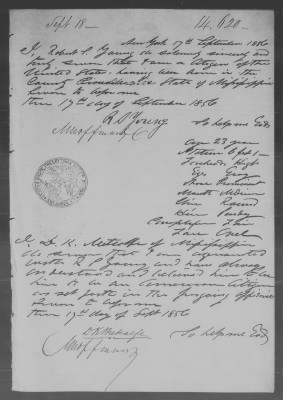 Sept 18 — 14,620 —
New York 17th September 1856
I, Robert S. Young do solemnly sincerely and
truly swear that I am a Citizen of the
United States, having been born in the
County State of Mississippi
Sworn to before me
this 17th day of September 1856
So help me God
R S Young
age 23 years
Stature 6 feet
Forehead High
Eyes Gray
Nose Prominent
Mouth Medium
Chin Round
Hair
Complexion Fair
Face Oval
I, D. K. Metcalfe of Mississippi
do swear that I am acquainted
and have always
understood and believed him to be
him to be an American Citizen
as set forth in the foregoing affidavit
Sworn to before me
this 17th day of Sept 1856
So help me God
D K Metcalfe